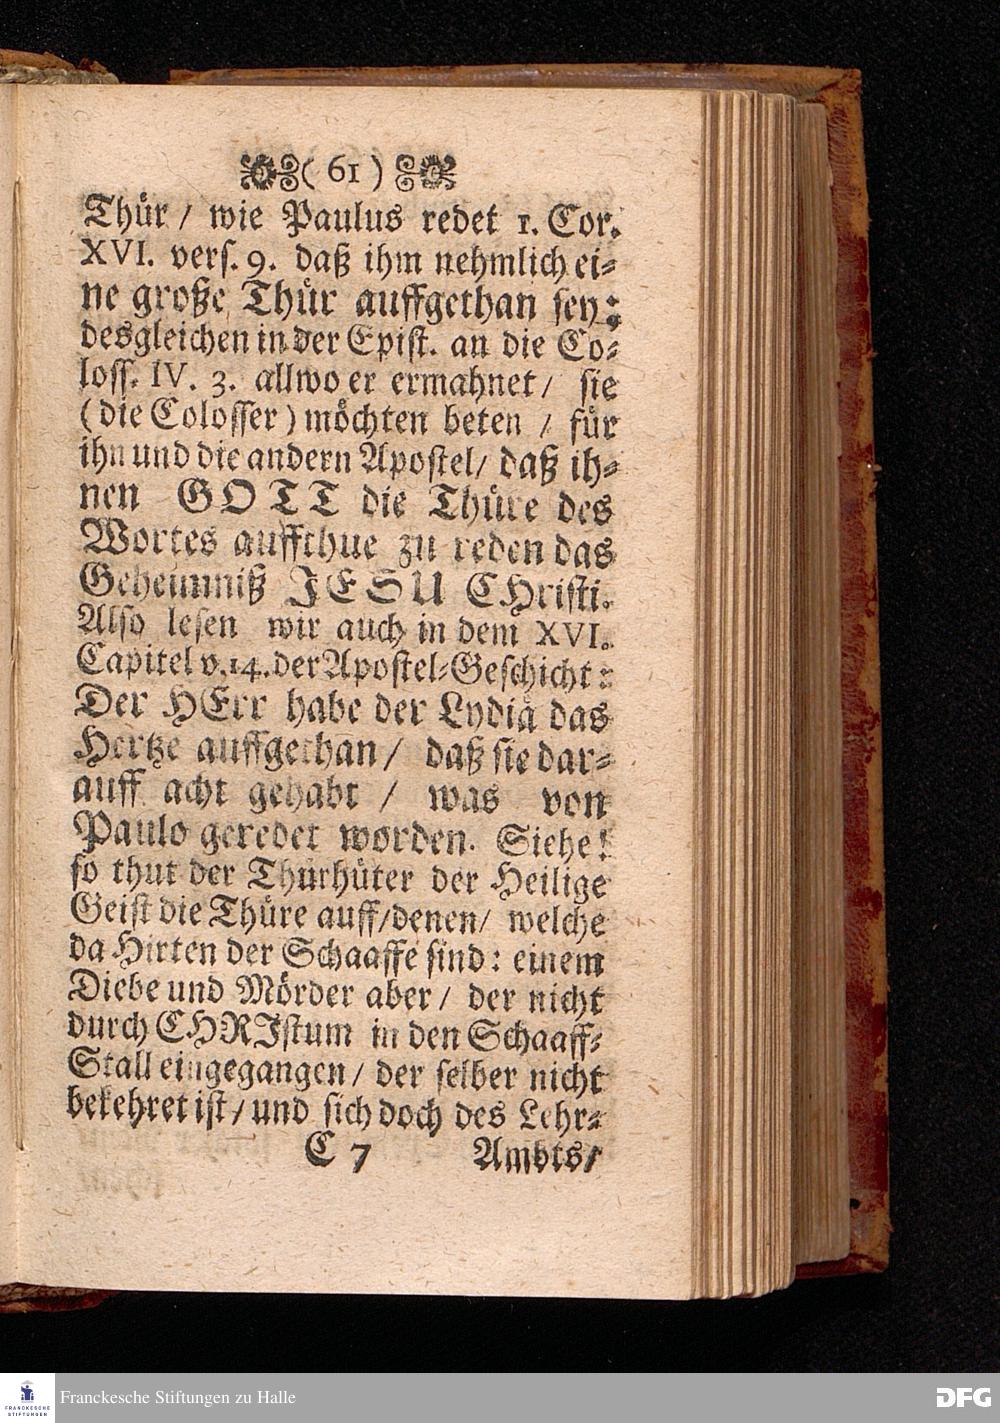 ( 61 )
Thür / wie Paulus redet 1. Cor.
XVI. vers. 9. daß ihm nehmlich ei-
ne große Thür auffgethan sey:
desgleichen in der Epist. an die Co-
loss. IV. 3. allwo er ermahnet / sie
(die Colosser) möchten beten / für
ihn und die andern Apostel / daß ih-
nen GOTT die Thüre des
Wortes auffthue zu reden das
Geheimniß JESU CHristi.
Also lesen wir auch in dem XVI.
Capitel v. 14. der Apostel-Geschicht:
Der HErr habe der Lydiä das
Hertze auffgethan / daß sie dar-
auff acht gehabt / was von
Paulo geredet worden. Siehe!
so thut der Thürhüter der Heilige
Geist die Thüre auff / denen / welche
da Hirten der Schaaffe sind: einem
Diebe und Mörder aber / der nicht
durch CHRIstum in den Schaaff-
Stall eingegangen / der selber nicht
bekehret ist / und sich doch des Lehr-
C 7 Ambts /
Franckesche Stiftungen zu Halle
FRANCKESCHE
STIFTUNGEN
DFG